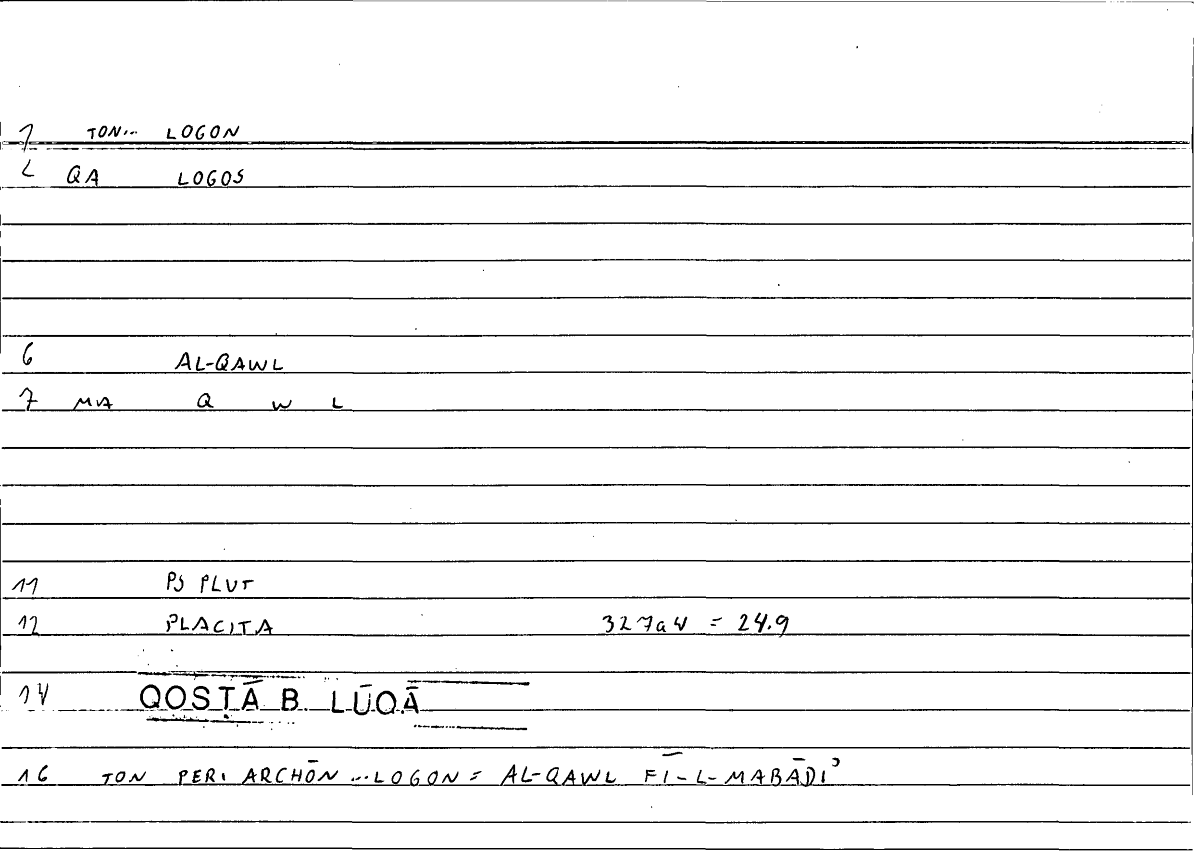 1 TON... LOGON
2 QA LOGOS
6 AL-QAWL
7 MA Q W L
11 PS PLUT
12 PLACITA 327a4 = 24.9
14 QOSṬĀ B. LŪQĀ
16 TON PERI ARCHŌN ...LOGON = AL-QAWL FĪ-L-MABĀDIʾ